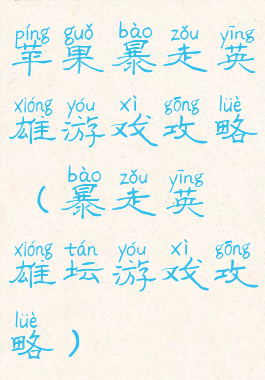 píng guǒ bào zǒu yīng
苹果暴走英
xióng yóu xì gōng lüè
雄游戏攻略
bào zǒu yīng
(暴走英
xióng tán yóu xì gōng
雄坛游戏攻
lüè
略)